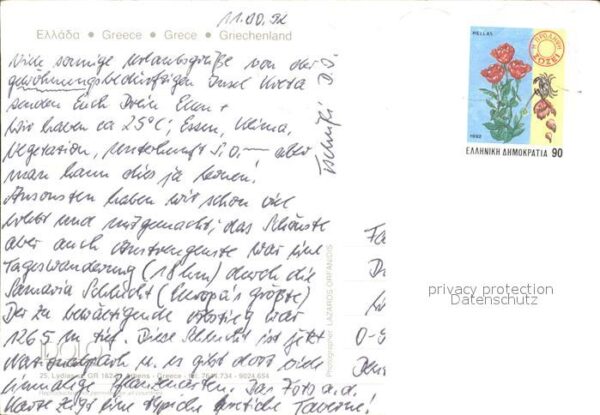 11.00.92
Ελλάδα • Greece • Grece • Griechenland
Viele sonnige Urlaubsgrüße von der
gewöhnungsbedürftigen Insel Kreta
senden Euch Deine Eltern
Wir haben ca 25°C; Essen, Klima,
Vegetation, Unterkunft S.O. – aber
man kann dies ja kennen!
Ansonsten haben wir schon viel
erlebt und mitgemacht; das Schönste
aber auch Anstrengenste war eine
Tageswanderung (18 km) durch die
Samaria Schlucht (Europa's größte)
Der zu bewältigende Abstieg war
1265 m tief. Diese Schlucht ist jetzt
Nationalpark u. es gibt dort viele
einmalige Pflanzenarten. Das Foto a.d.
Karte zeigt eine typische Taverne!
Tschüßi
HELLAS
Η ΠΥΡΚΑΓΙΑ
1992
ΕΛΛΗΝΙΚΗ ΔΗΜΟΚΡΑΤΙΑ 90
Photographer: LAZAROS ORFANIDIS
privacy protection
Datenschutz